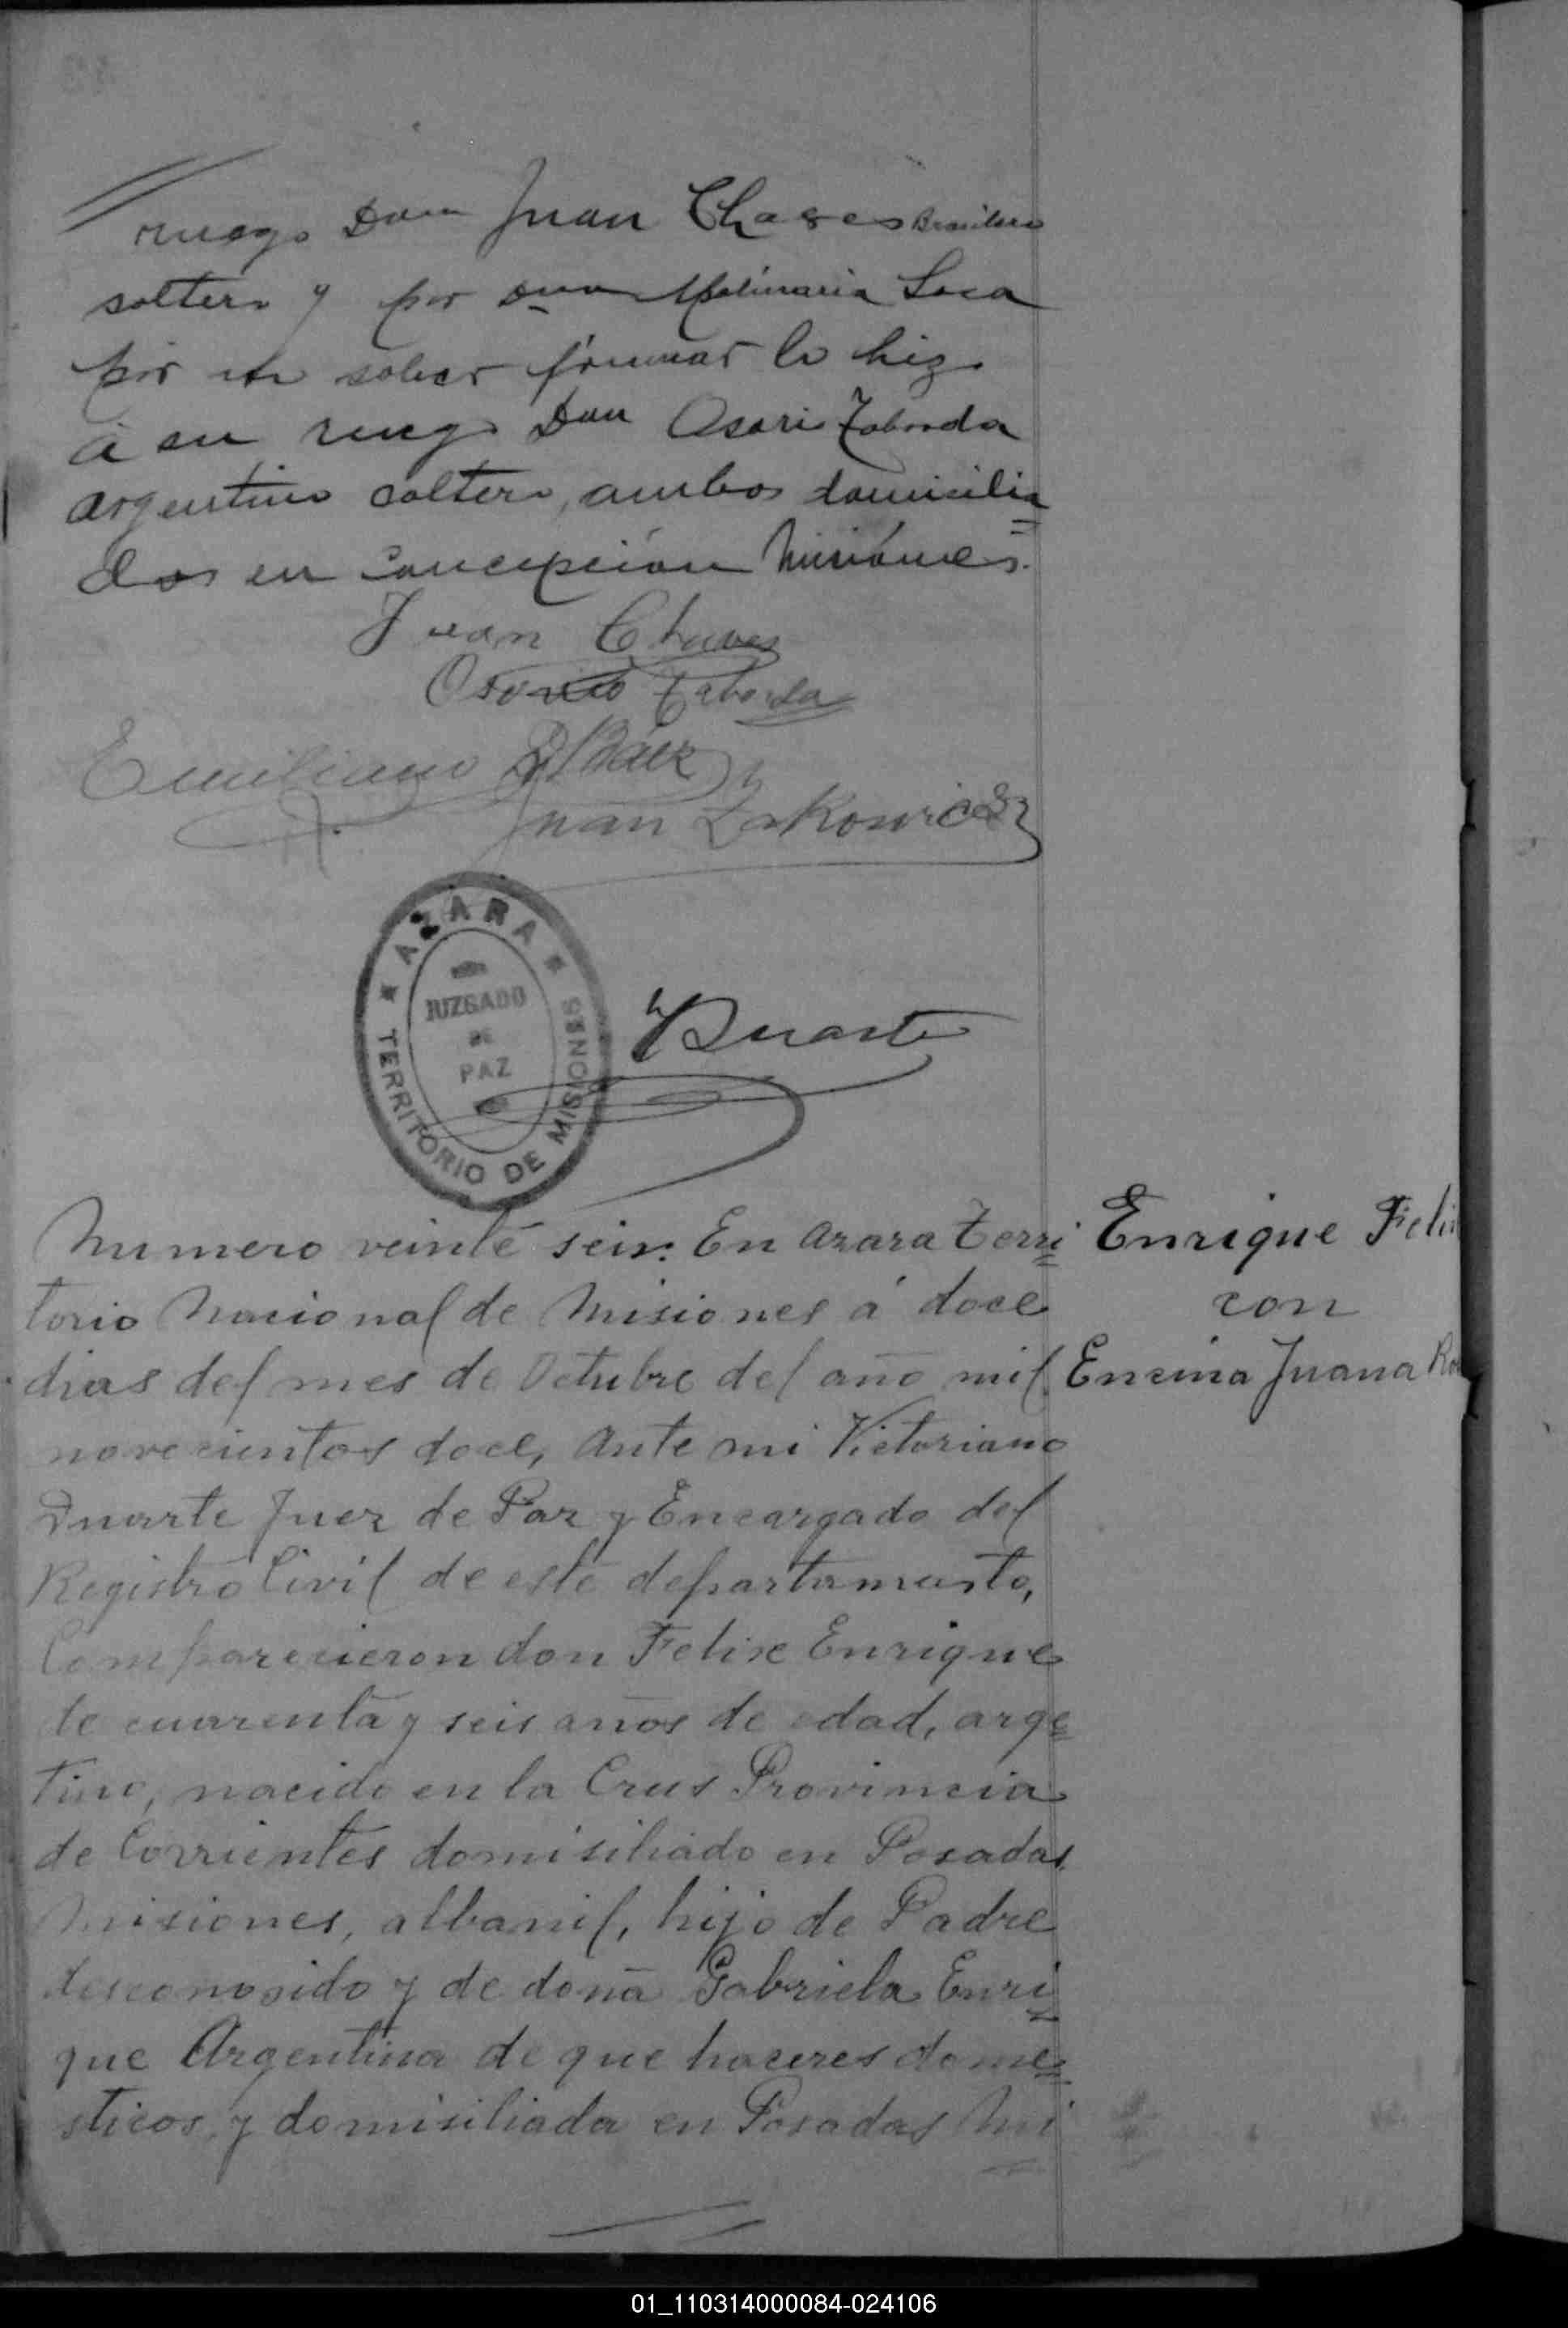 ruego Don Juan Chaves Brasilero
soltero y por Doña Apolinaria Sosa
por no saber firmar lo hizo
a su ruego Don Osorio Taborda
argentino soltero, ambos domisilia
dos en Concepción Misiones.
Juan Chaves
Osorio Taborda
Emiliano R. Báez
Juan Zakowicz
AZARA
JUZGADO
DE
PAZ
TERRITORIO DE MISIONES
V Duarte
Numero veinte seis: En Azara Terri
Enrique Feli
torio Nacional de Misiones á doce
con
dias del mes de Octubre del año mil
Encina Juana Ro
novecientos doce, Ante mi Victoriano
Duarte Juez de Paz y Encargado del
Registro Civil de este departamento,
Comparecieron don Felix Enrique
de cuarenta y seis años de edad, arge
tino, nacido en la Crus Provincia
de Corrientes domisiliado en Posadas
Misiones, albanil, hijo de Padre
desconosido y de doña Gabriela Enri
que Argentina de que haceres dome
sticos, y domisiliada en Posadas Mi
01_110314000084-024106